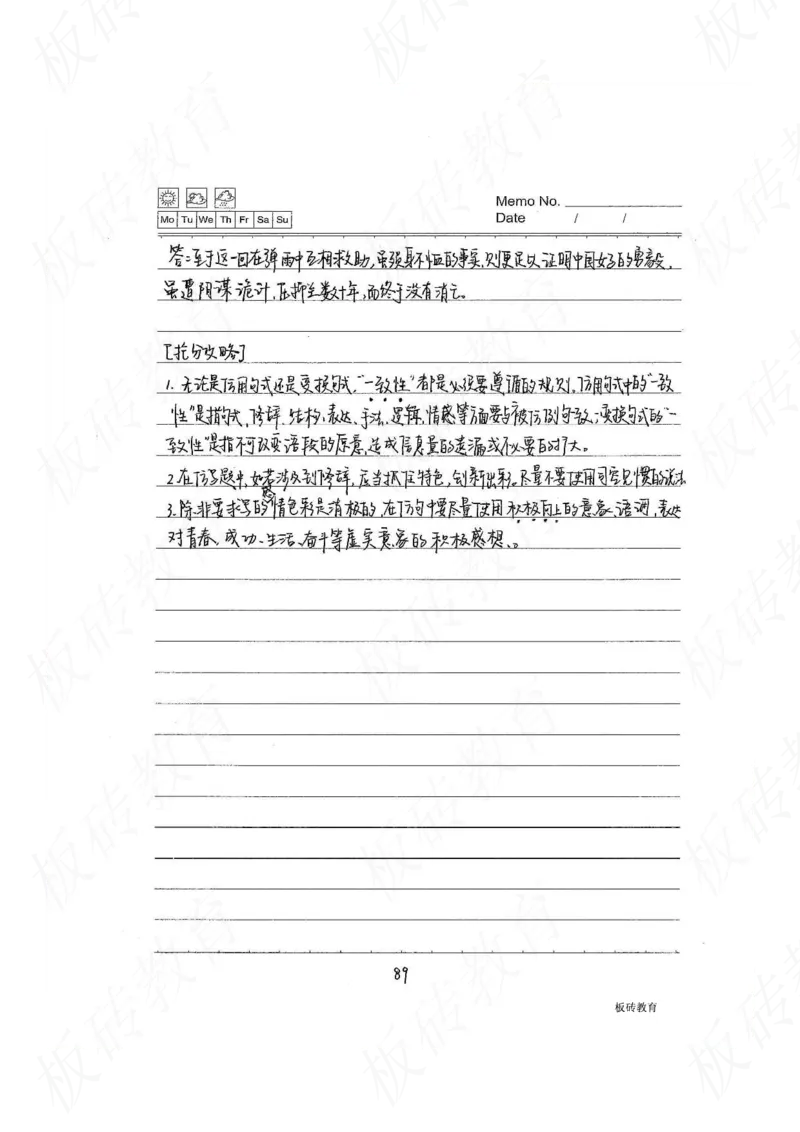 Memo No.
Mo Tu We Th Fr Sa Su
Date / /
答:至于这一回在弹雨中互相救助,虽殒身不恤的事实,则更足以证明中国女子的勇毅,
虽遭阴谋诡计,压抑至数千年,而终于没有消亡。
[抢分攻略]
1. 无论是仿用句式还是变换句式,“一致性”都是必须要遵循的规则。仿用句式中的“一致
性”是指句式、修辞、结构、表达、手法、逻辑、情感等方面要与被仿例句一致;变换句式的“一
致性”是指不可改变语段的原意,造成信息量的遗漏或不必要的扩大。
2.在仿写题中,如若涉及到修辞,应当抓住特色,创新出彩。尽量不要使用司空见惯的说法
3.除非要求写的情感色彩是消极的,在仿句中要尽量使用积极向上的意象、语词,表达
对青春、成功、生活、奋斗等虚实意象的积极感想。
89
板砖教育